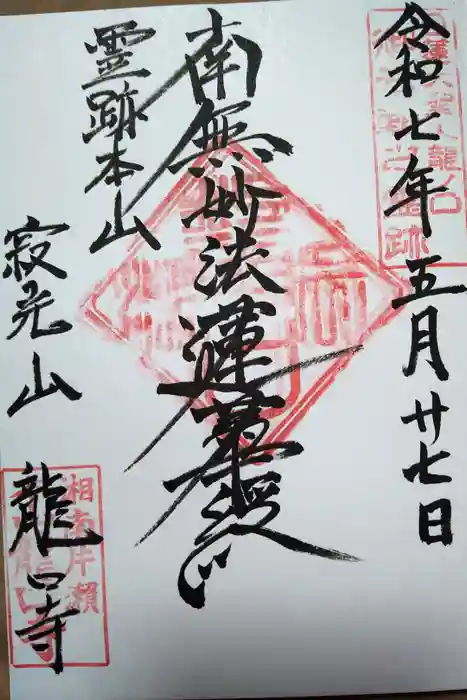 令和七年五月廿七日
南無妙法蓮華経
霊跡本山
寂光山
龍口寺
相南片瀬